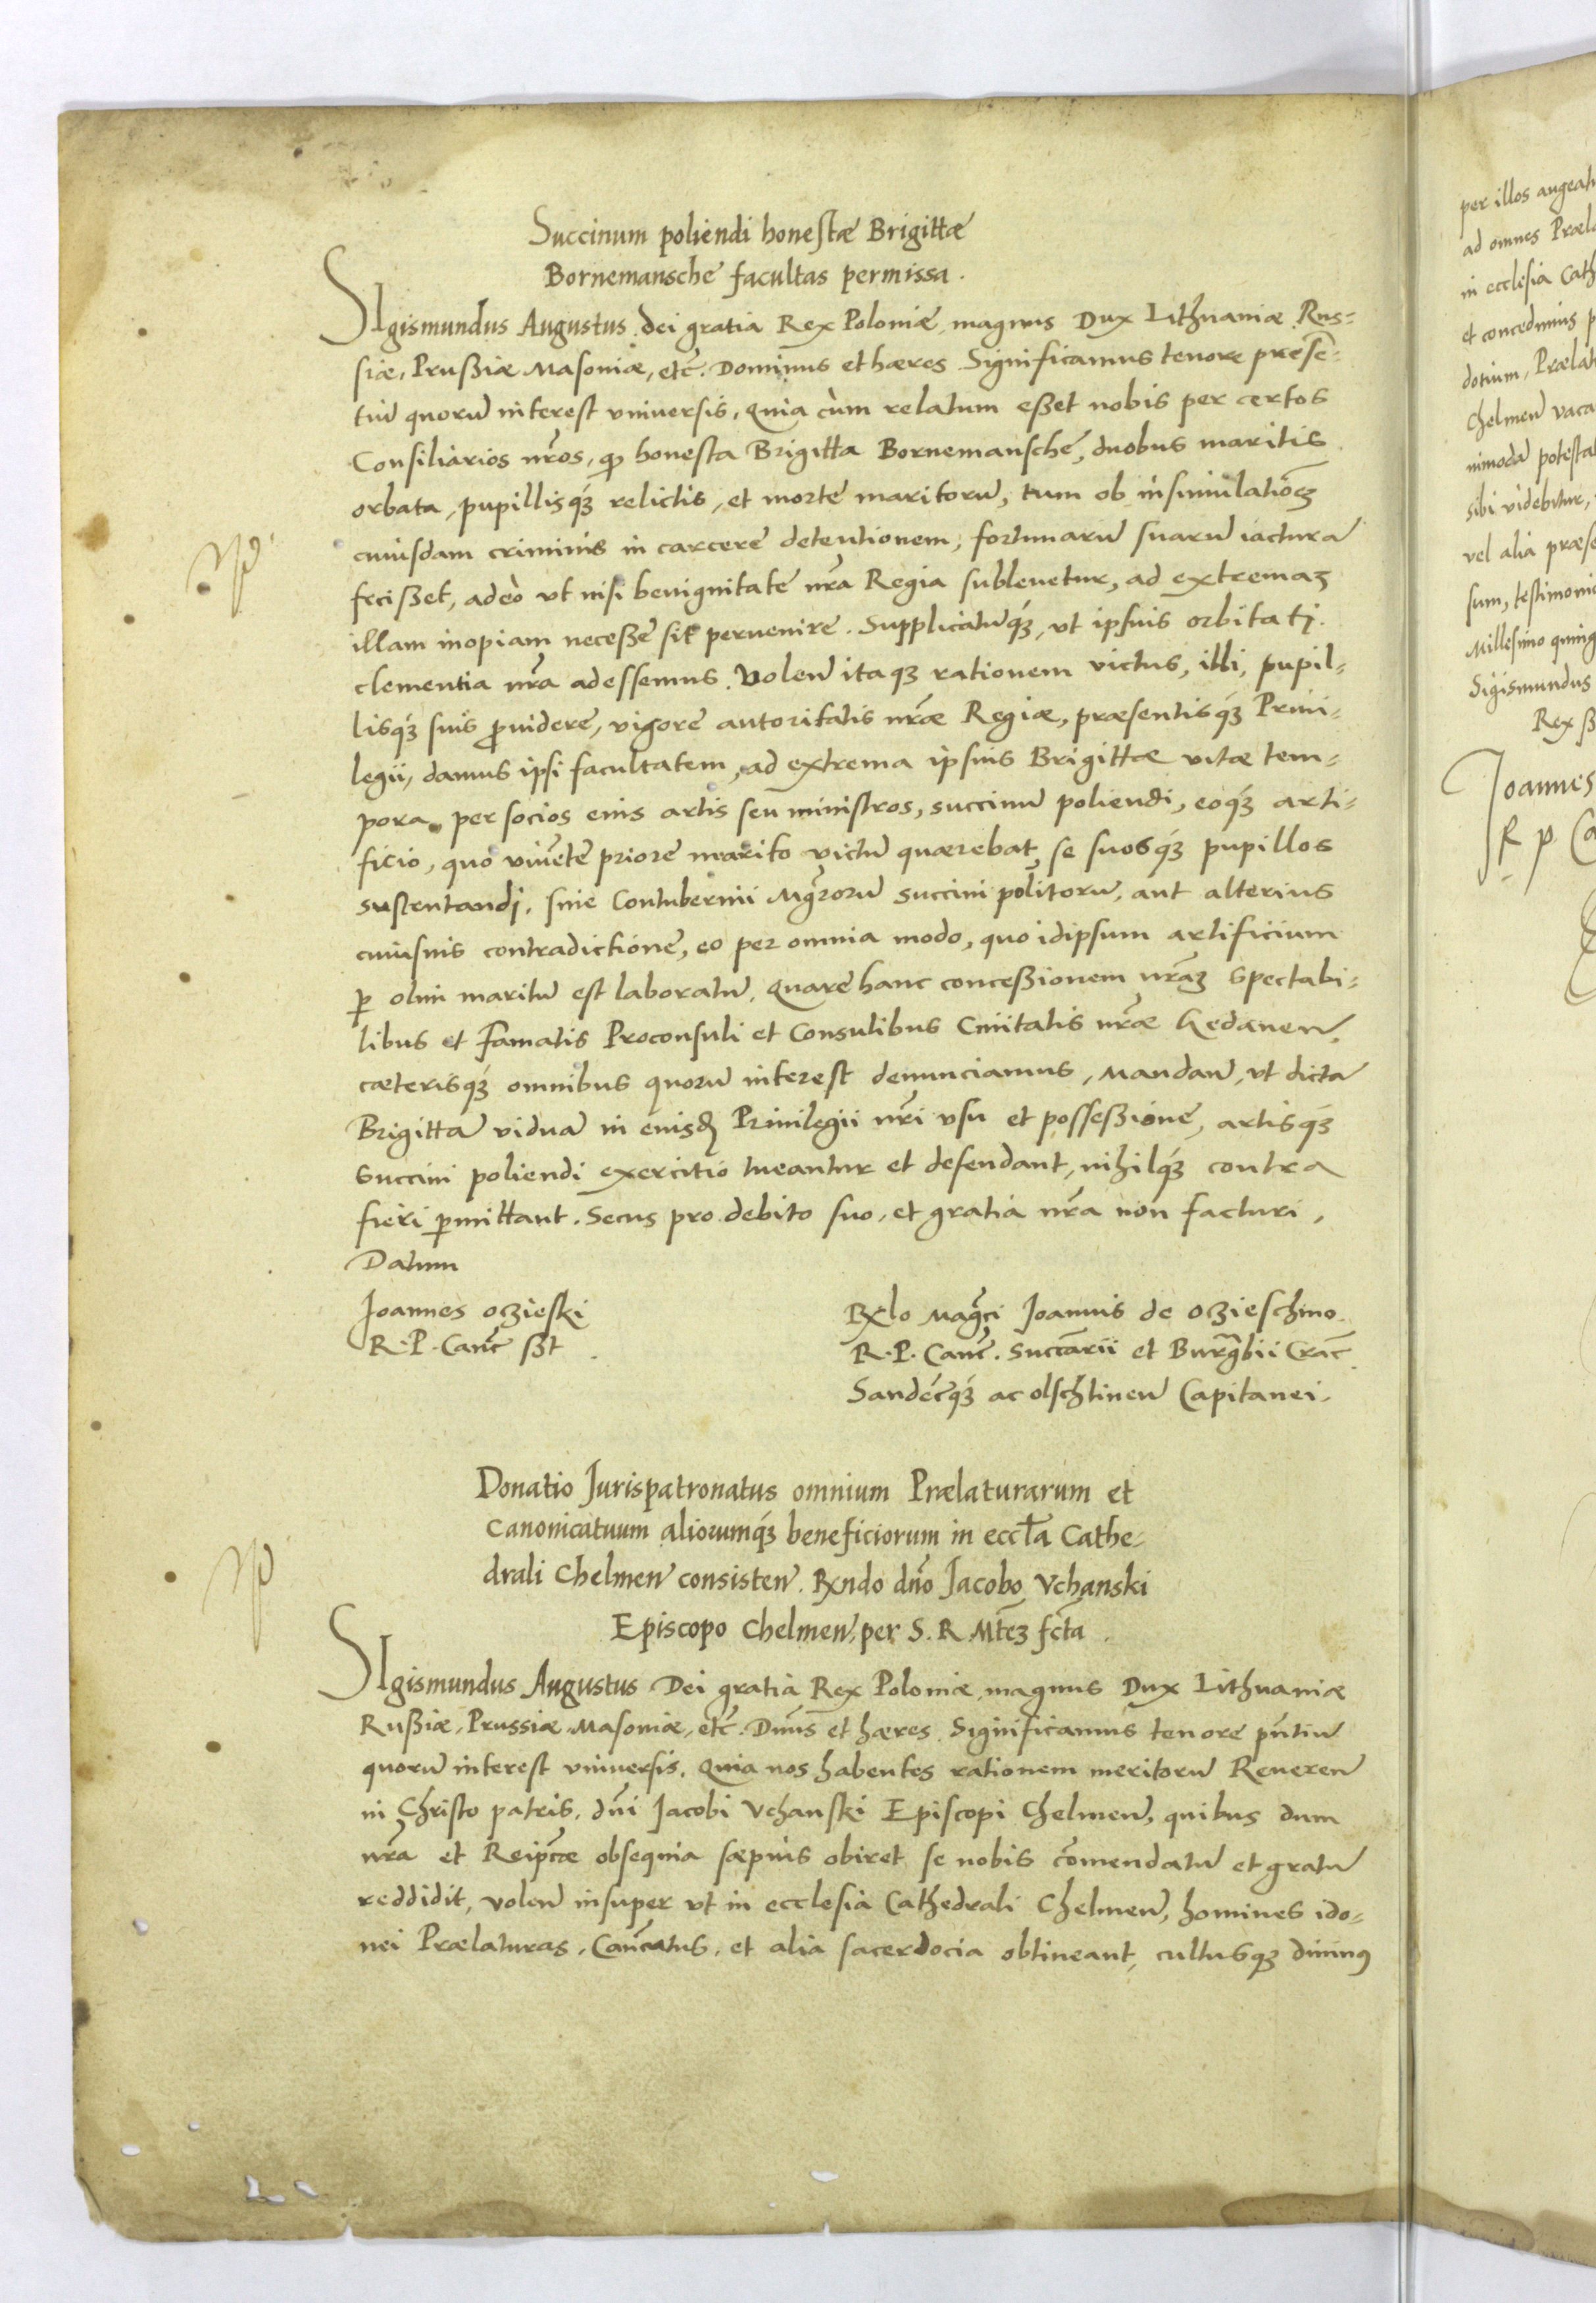 Succinum poliendi honestæ Brigittæ
Bornemansche facultas permissa.
SIgismundus Augustus dei gratia Rex Poloniæ, magnus Dux Lithuaniæ, Rus-
siæ, Prußiæ Masoniæ, etc̃. Dominus et hæres. Significamus tenore præsẽ-
tiũ quorũ interest vniuersis, Quia cùm relatum eßet nobis per certos
Consiliarios nr̃os, qꝫ honesta Brigitta Bornemansche, duobus maritis
orbata, pupillisqꝫ relictis, et morte maritorũ, tum ob insimulatiõeꝫ
cuiusdam criminis in carcere detentionem, fortunarũ suarũ iacturã
fecißet, adeò vt nisi benignitate nr̃a Regia subleuetur, ad extremaꝫ
illam inopiam neceße sit peruenire. Supplicatũqꝫ, vt ipsius orbitati
clementia nr̃a adessemus. Volen̄ itaqꝫ rationem victus, illi, pupil-
lisqꝫ suis ꝓuidere, vigore autoritatis nr̃æ Regiæ, præsentisqꝫ Priui-
legii, damus ipsi facultatem, ad extrema ipsius Brigittæ vitæ tem-
pora, per socios eius artis seu ministros, succinũ poliendi, eoqꝫ arti-
ficio, quo viuẽte priore marito victũ quærebat, se suosqꝫ pupillos
sustentandi, sine Contubernii Mgr̃orũ succini politorũ, aut alterius
cuiusuis contradictione, eo per omnia modo, quo idipsum artificium
ꝑ olim maritũ est laboratũ. Quare hanc conceßionem nr̃aꝫ Spectabi-
libus et Famatis Proconsuli et Consulibus Ciuitatis nr̃æ Gedanen̄,
cæterisqꝫ omnibus quorũ interest denunciamus, Mandan̄, vt dictã
Brigittã viduã in eiusd̃ Priuilegii nr̃i vsu et possessione, artisqꝫ
succini poliendi exercitio tueantur et defendant, nihilqꝫ contra
fieri ꝑmittant. Secus pro debito suo, et gratia nr̃a non facturi.
Datum
Joannes oczieski
R. P. Canc̃ sßt
Rx̃lo Magc̃i Joannis de oczieschino
R. P. Canc̃. Succãrii et Burgr̃abii Crac̃
Sandec̃qꝫ ac olschtinen̄ Capitanei.
Donatio Jurispatronatus omnium Prælaturarum et
Canonicatuum aliorumqꝫ beneficiorum in eccl̃a Cathe-
drali Chelmen̄ consisten̄. Rx̃ndo dn̄o Jacobo Vchanski
Episcopo Chelmen̄, per S. R. Mtẽꝫ fct̃a.
SIgismundus Augustus Dei gratia Rex Poloniæ, magnus Dux Lithuaniæ
Rußiæ, Prussiæ, Masoniæ, etc̃. Dn̄us et hæres. Significamus tenore pn̄tiũ
quorũ interest vniuersis, Quia nos habentes rationem meritorũ Reueren̄
in Christo patris, dn̄i Jacobi Vchanski Episcopi Chelmen̄, quibus dum
nr̃a et Reipc̃æ obsequia sæpius obiret se nobis cõmendatũ et gratũ
reddidit, volen̄ insuper vt in ecclesia Cathedrali Chelmen̄, homines ido-
nei Prælaturas, Canc̃atus, et alia sacerdocia obtineant, cultusqꝫ diuinꝰ
per illos augeat
ad omnes Præl
in ecclesia Cath
et concedimus p
dotium, Prælat
Chelmen̄ vaca
nimodã potesta
sibi videbitur,
vel alia præse
sum, testimonio
Millesimo quing
Sigismundus
Rex ß
Joannes
R P Ca